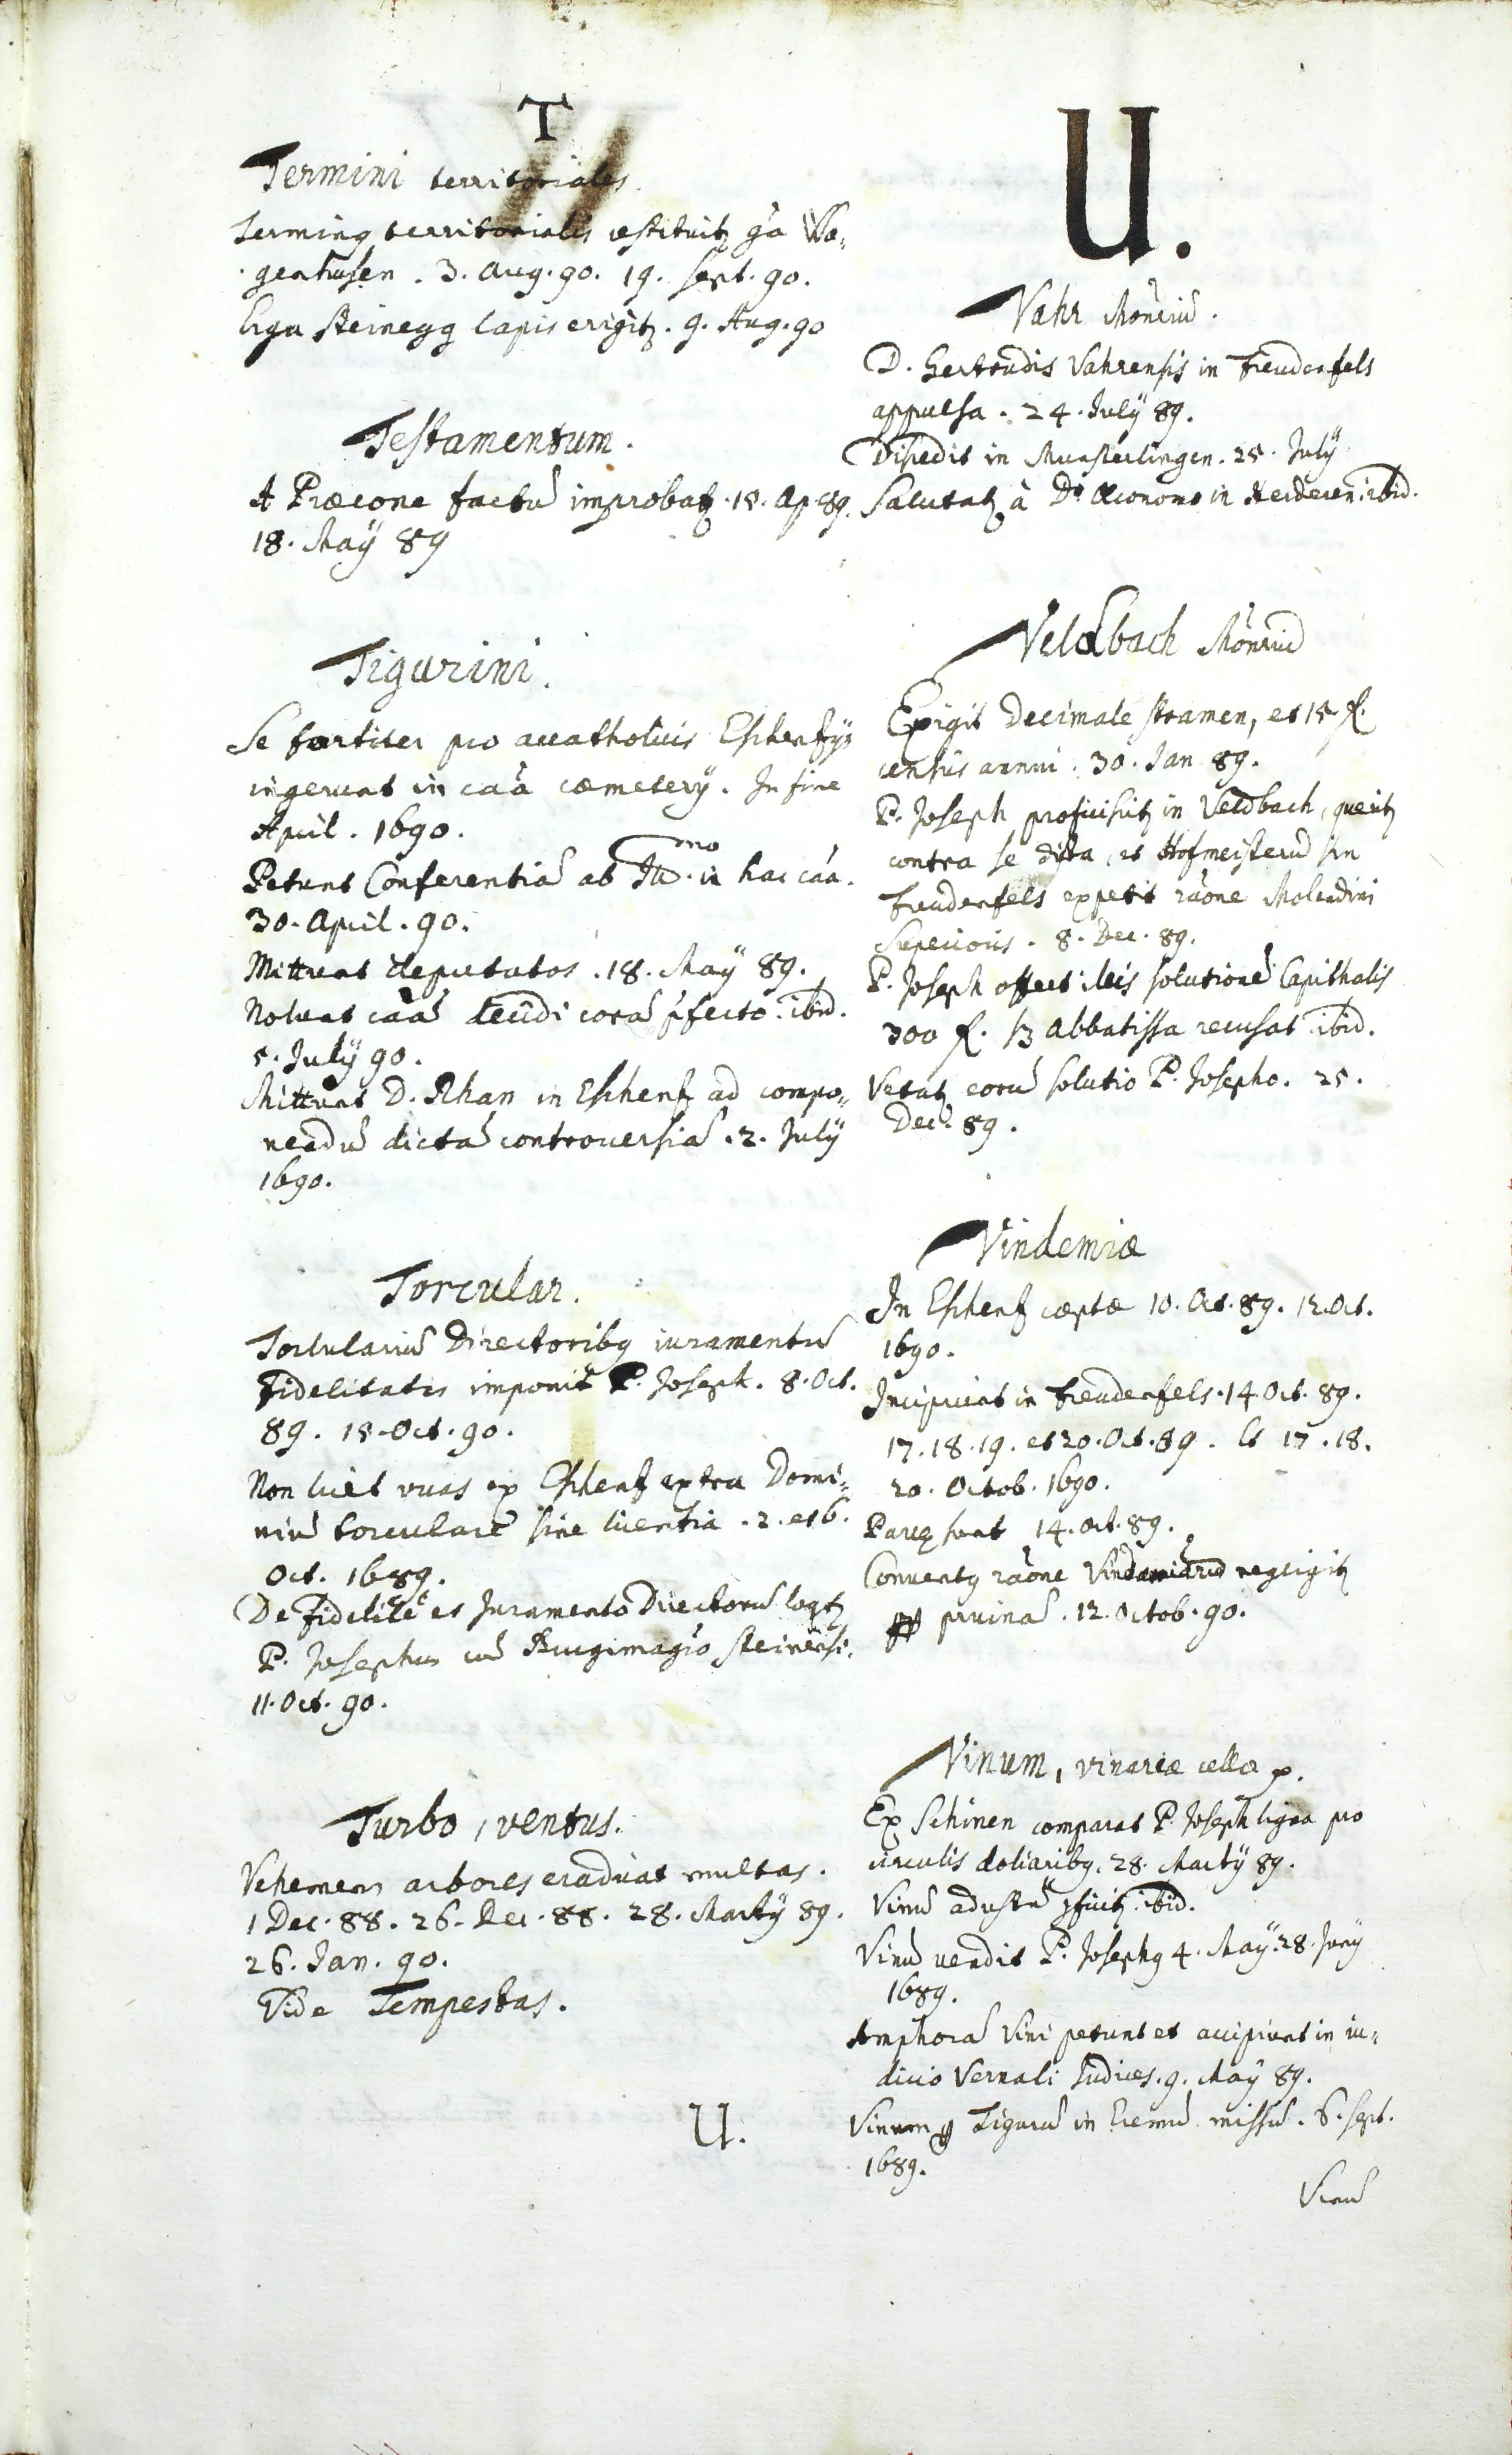 T
Termini territoriales.
Terminq territorialis restituitʒ ga Wa„
genhusen. 3. Aug. 90. 19. Sept. 90.
Erga Steinegg lapis erigitʒ. 9. Aug. 90
Testamentum.
A Præcone factū improbatʒ. 15. Ap. 89.
18. Maÿ 89
Tigurini.
Se fortiter pro acatholicis Eschenzÿs
ingerunt in caā cœmeterÿ. In fine
April. 1690.
Petunt Conferentiā ab Illmo. in hac caā.
30. April. 90.
Mittunt deputatos. 18. Maÿ 89.
Nolunt caā decidi corā pfecto. ibid.
5. Julÿ 90.
Mittunt D. Rhan in Eschenz ad compo„
nendū dictā controversiā. 2. Julÿ
1690.
Torcular.
Torculariū Directoribq iuramentū
Fidelitatis imponit P. Joseph. 8. Oct.
89. 15. Oct. 90.
Non licet vuas ex Eschenz extra Domi„
niū torculare sine licentia. 2. et 6.
Oct. 1689.
De Fidelitē et Juramento Directorū loqtʒ
P. Josephus cū Burgimagrō Steinensi.
11. Oct. 90.
Turbo, ventus.
Vehemens arbores eradicat multas.
1 Dec. 88. 26. Dec. 88. 28. Martÿ 89.
26. Jan. 90.
Vide Tempestas.
U.
U.
Vahr Mōnriū.
D. Gertrudis Vahrensis in Freudenfels
appulsa. 24. Julÿ 89.
Discedit in Munsterlingen. 25. Julÿ
Salutatʒ à Do. Œconomo in Herderen. ibid.
Veldbach Mōnriū
Exigit Decimale stramen, et 15 fl.
census annui. 30. Jan 89.
P. Joseph proficiscitʒ in Veldbach, queritʒ
contra se dicta, et Hofmeisterū in
Freudenfels expetit raōne Molendini
Superioris. 8. Dec. 89.
P. Joseph offert illis solutionē Capithalis
300 fl. sʒ Abbatissa recusat. ibid.
Vetatʒ eorū solutio P. Josepho. 25.
Dec. 89.
Vindemiæ
In Eschenz cœptæ 10. Oct. 89. 12. Oct.
1690.
Incipiunt in Freudenfels. 14. Oct. 89.
17. 18. 19. et 20. Oct. 89. Et 17. 18.
20. Octob. 1690.
Parcæ sunt 14. Oct. 89.
Conventq raōne Vindemiārū negligitʒ
pp pruinā. 12. Octob. 90.
Vinum, vinariæ cellæ p.
Ex Schinen comparat P. Joseph ligna pro
circulis doliaribq. 28. Martÿ 89.
Vinū adustū pficitʒ. ibid.
Vinū vendit P. Josephq 4. Maÿ. 28. Junÿ
1689.
Amphorā Vini petunt et accipiunt in iu„
dicio Vernali Judices. 9. Maÿ 89.
Vinum p Tigurū in Eremū missū. 6. Sept.
1689.
Vinū